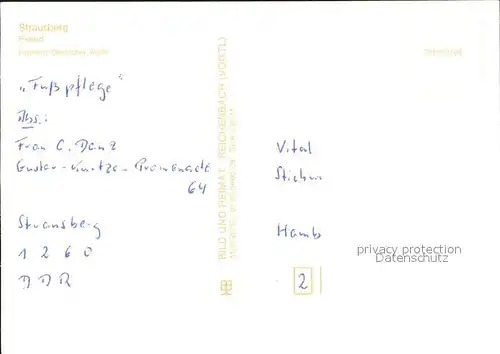 Strausberg
"Fußpflege"
Abs.:
Frau C. Danz
Gustav-Kurtze-Promenade
64
Strausberg
1 2 6 0
DDR
BILD UND HEIMAT REICHENBACH (VOGTL)
Vital
Hamb
2
privacy protection
Datenschutz